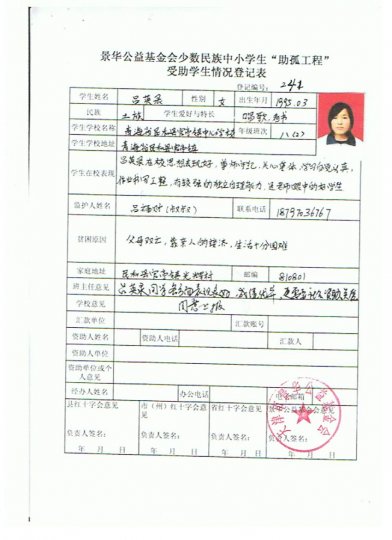 景华公益基金会少数民族中小学生“助孤工程”
受助学生情况登记表
登记编号: 244
学生姓名 吕英录 性别 女 出生年月 1995.03
民族 土族 学生爱好与特长 唱歌、看书
学生学校名称 青海省民和县官亭镇中心学校 年级班次 八(2)
学生学校地址 青海省民和县官亭镇
学生在校表现 吕英录在校思想表现好,尊师守纪,关心集体,学习自觉认真,
作业书写工整,有较强的独立自理能力,是老师眼中的好学生
监护人姓名 吕 (叔叔) 联系电话 18797036767
贫困原因 父母双亡,靠亲人的接济,生活十分困难
家庭地址 民和县官亭镇光辉村 邮编 810801
班主任意见 吕英录同学
学校意见 同意上报
汇款单位 汇款账号
资助人姓名 资助人电话 汇款人
资助人单位
资助单位或个人意见
经办人姓名 办公电话 电子邮箱
县红十字会意见 市(州)红十字会意见 省红十字会意见 景华公益基金会意见
负责人签名: 负责人签名: 负责人签名: 负责人签名:
年 月 日 年 月 日 年 月 日 年 月 日
天津市景华公益基金会